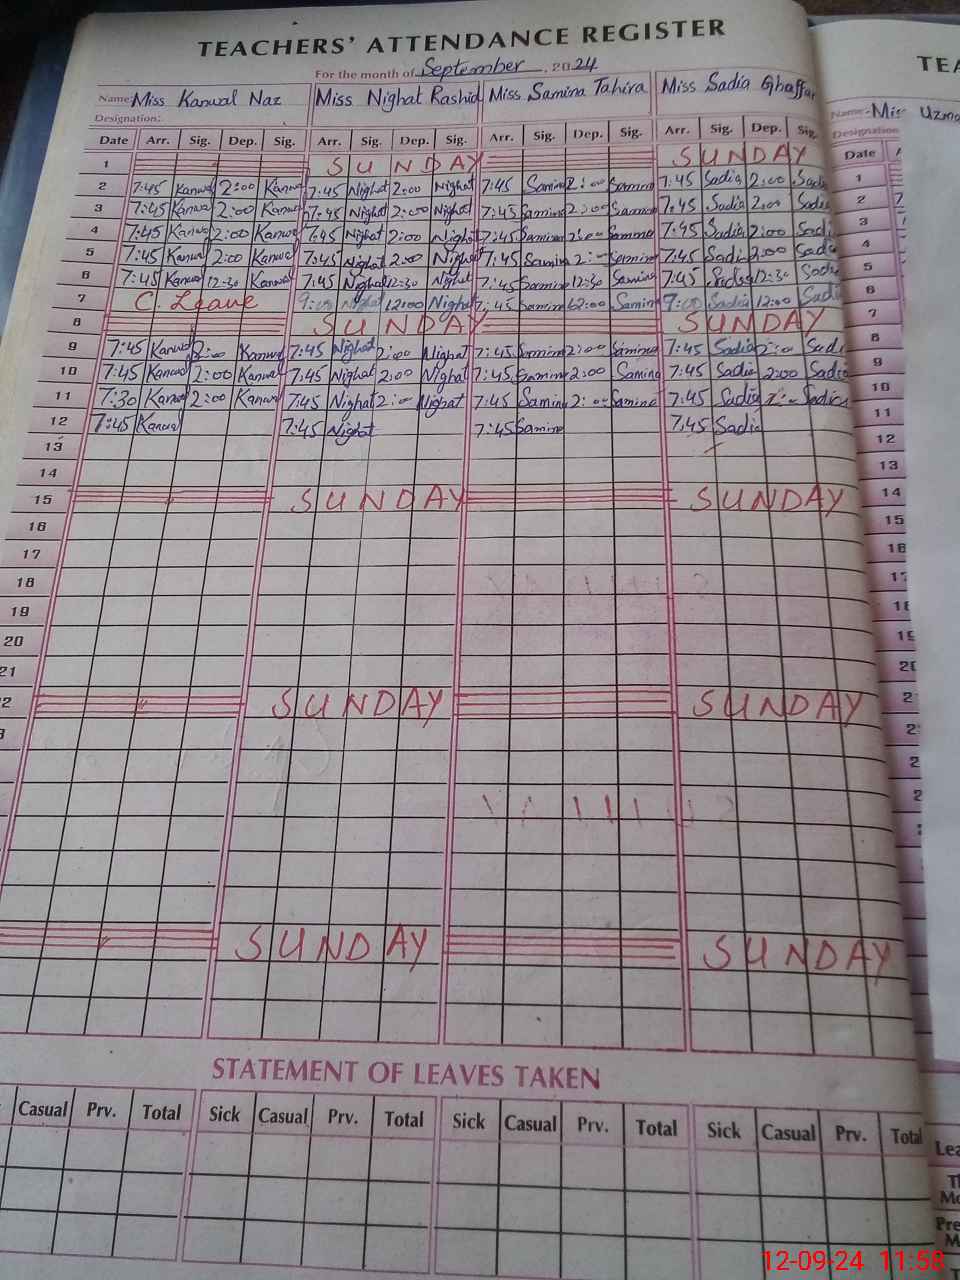 TEACHERS' ATTENDANCE REGISTER
For the month of September, 2024
Name: Miss Kanwal Naz Miss Nighat Rashid Miss Samina Tahira Miss Sadia Ghaffar
Designation:
Date Arr. Sig. Dep. Sig. Arr. Sig. Dep. Sig. Arr. Sig. Dep. Sig. Arr. Sig. Dep. Sig.
1 SUNDAY SUNDAY
2 7:45 Kanwal 2:00 Kanwal 7:45 Nighat 2:00 Nighat 7:45 Samina 2:00 Samina 7:45 Sadia 2:00 Sadia
3 7:45 Kanwal 2:00 Kanwal 7:45 Nighat 2:00 Nighat 7:45 Samina 2:00 Samina 7:45 Sadia 2:00 Sadia
4 7:45 Kanwal 2:00 Kanwal 7:45 Nighat 2:00 Nighat 7:45 Samina 2:00 Samina 7:45 Sadia 2:00 Sadi
5 7:45 Kanwal 2:00 Kanwal 7:45 Nighat 2:00 Nighat 7:45 Samina 2:00 Samina 7:45 Sadia 2:00 Sadia
6 7:45 Kanwal 12:30 Kanwal 7:45 Nighat 12:30 Nighat 7:45 Samina 12:30 Samina 7:45 Sadia 12:30 Sadi
7 C. Leave 9:00 Nighat 12:00 Nighat 7:45 Samina 12:00 Samina 9:00 Sadia 12:00 Sadi
8 SUNDAY SUNDAY
9 7:45 Kanwal 2:00 Kanwal 7:45 Nighat 2:00 Nighat 7:45 Samina 2:00 Samina 7:45 Sadia 2:00 Sadi
10 7:45 Kanwal 2:00 Kanwal 7:45 Nighat 2:00 Nighat 7:45 Samina 2:00 Samina 7:45 Sadia 2:00 Sadia
11 7:30 Kanwal 2:00 Kanwal 7:45 Nighat 2:00 Nighat 7:45 Samina 2:00 Samina 7:45 Sadia Sadia
12 7:45 Kanwal 7:45 Nighat 7:45 Samina 7:45 Sadia
13
14
15 SUNDAY SUNDAY
16
17
18
19
20
21
2 SUNDAY SUNDAY
3
SUNDAY SUNDAY
STATEMENT OF LEAVES TAKEN
Casual Prv. Total Sick Casual Prv. Total Sick Casual Prv. Total Sick Casual Prv. Total
TEA
Name: Miss Uzma
Designation
Date
1
2
3
4
5
6
7
8
9
10
11
12
13
14
15
16
Lea
Pre
12-09-24 11:58